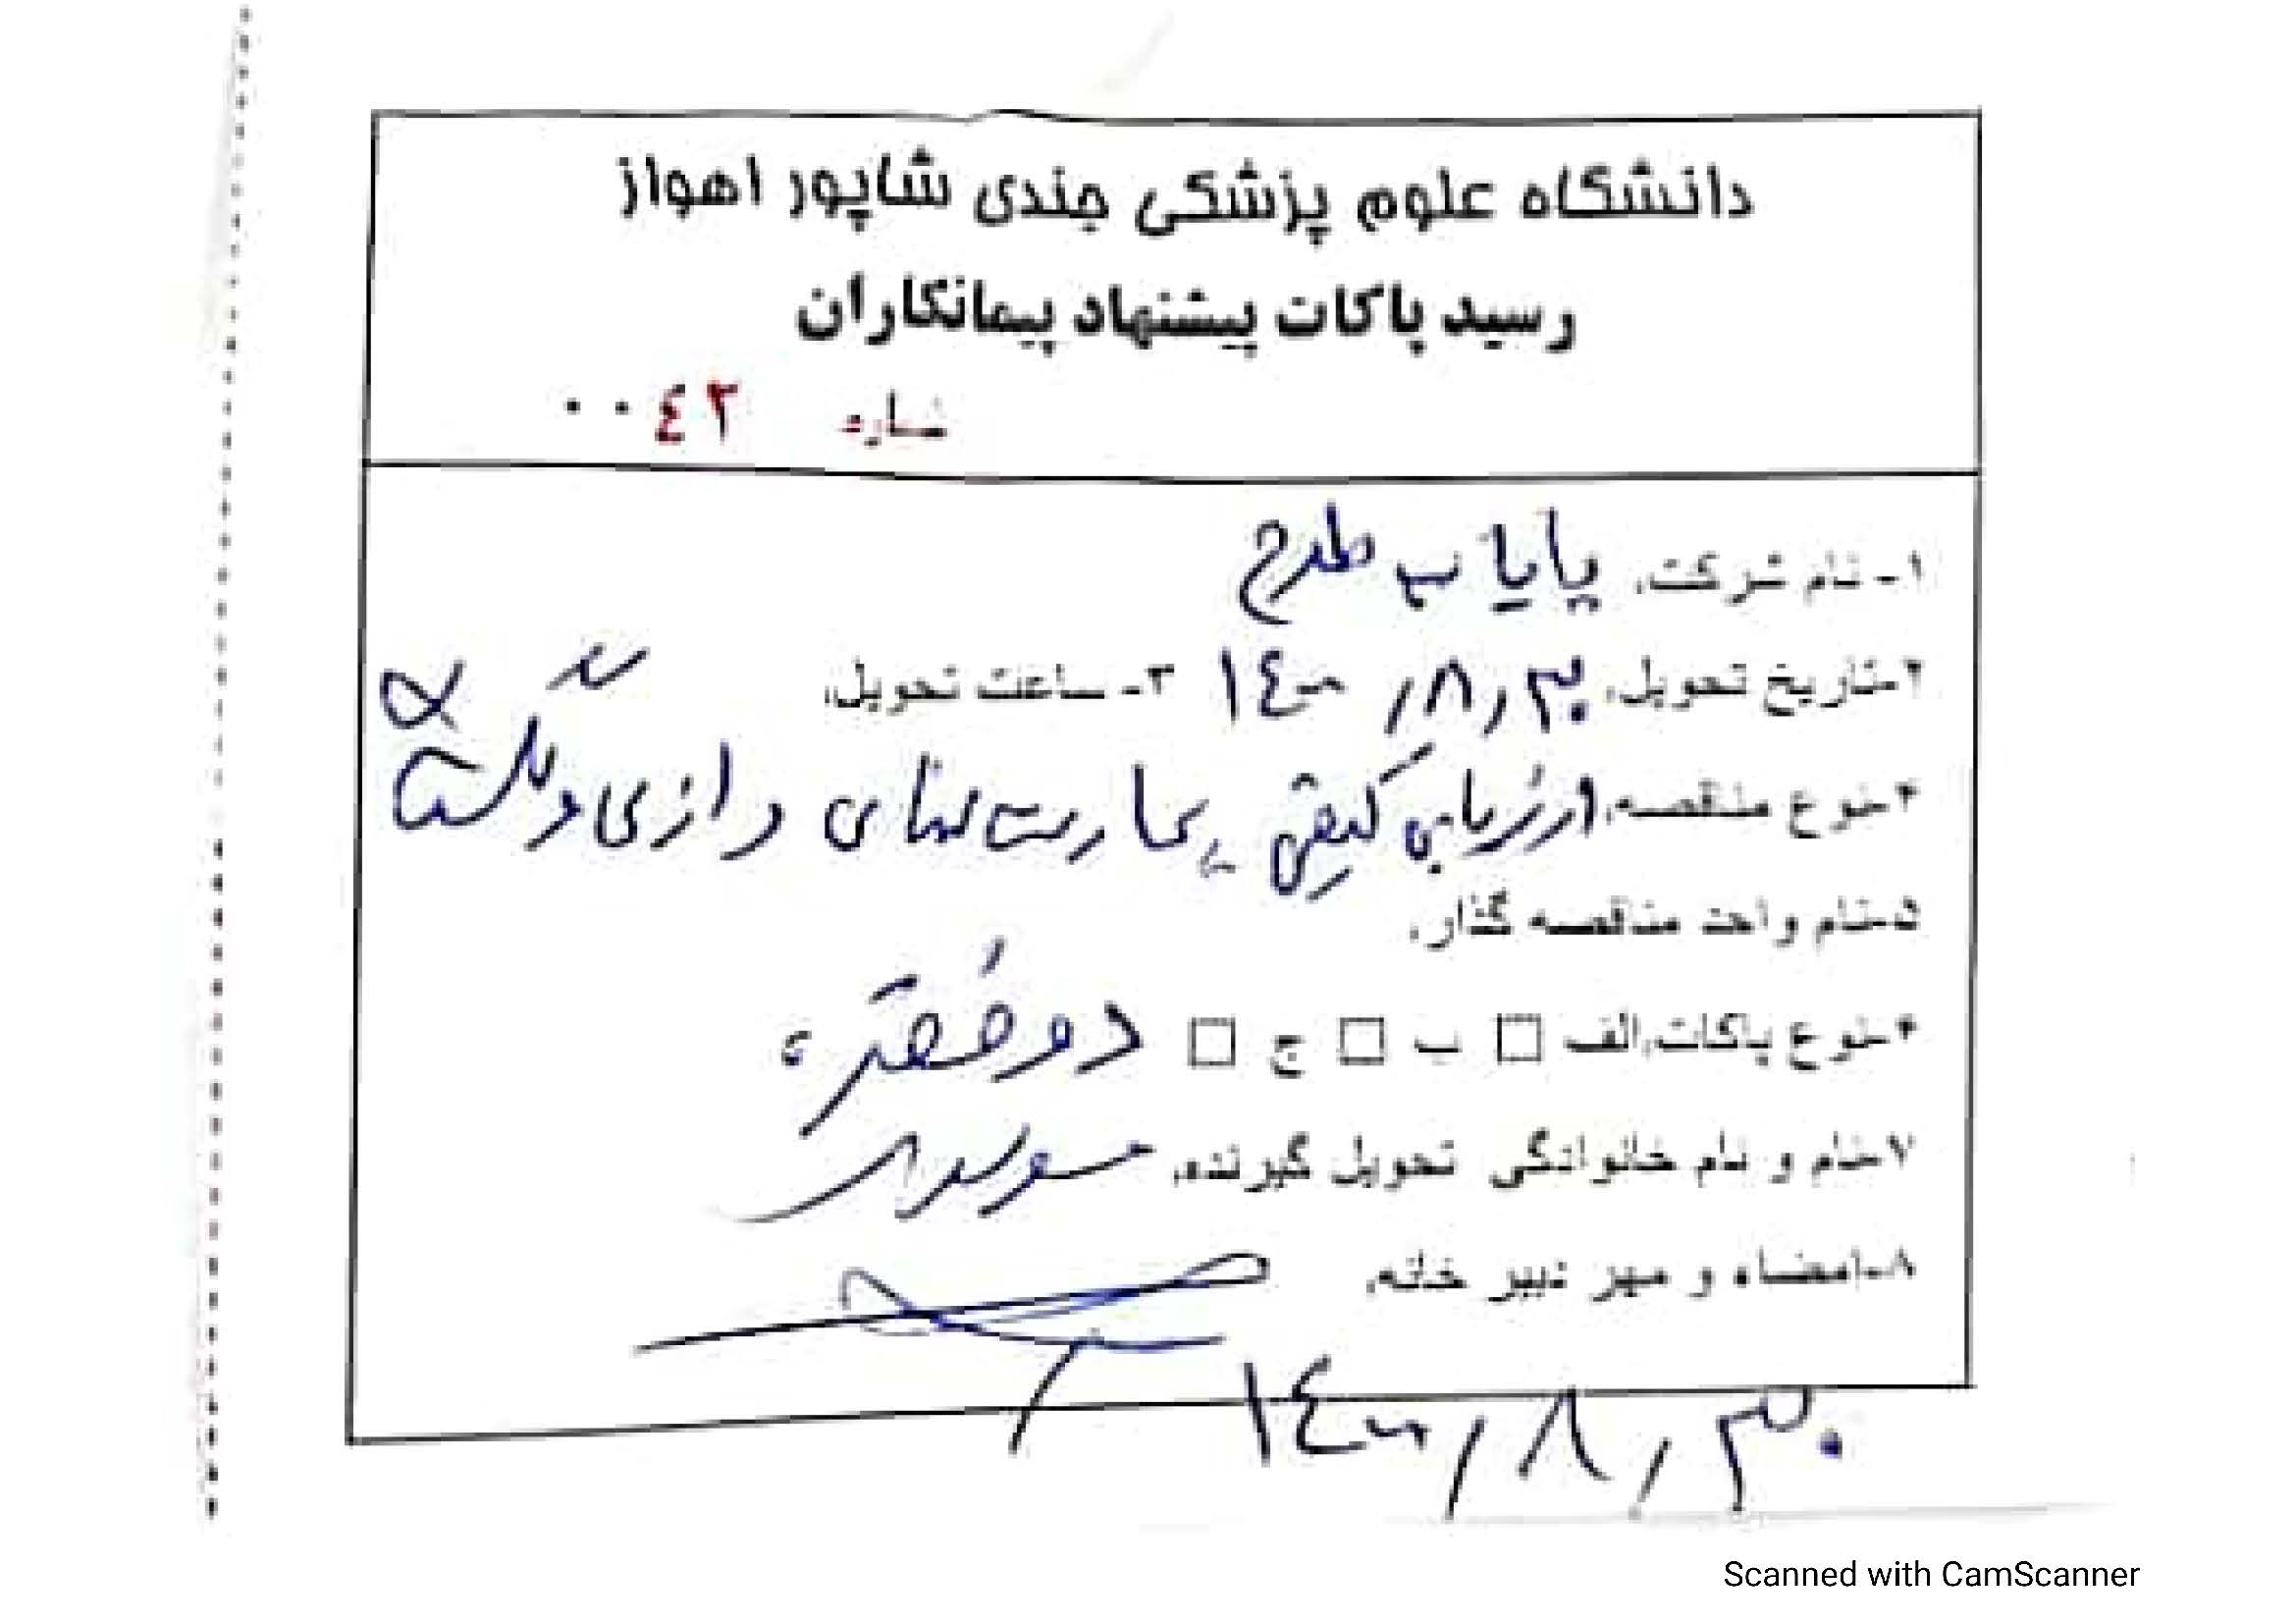 دانشگاه علوم پزشکی جندی شاپور اهواز
رسید پاکات پیشنهاد پیمانکاران
شماره ۰۰٤۲
۱- نام شرکت: پایاب طرح
۲-تاریخ تحویل: ۱٤۰۰/۸/۳۰ ۳- ساعت تحویل:
۴-نوع مناقصه: ارزیابی کیفی بیمارستانهای رازی و گلستان
۵-نام واحد مناقصه گذار:
۶-نوع پاکات: الف □ ب □ ج □ دو فقره
۷-نام و نام خانوادگی تحویل گیرنده:
۸-امضاء و مهر دبیر خانه:
۱٤۰۰/۸/۳۰
Scanned with CamScanner